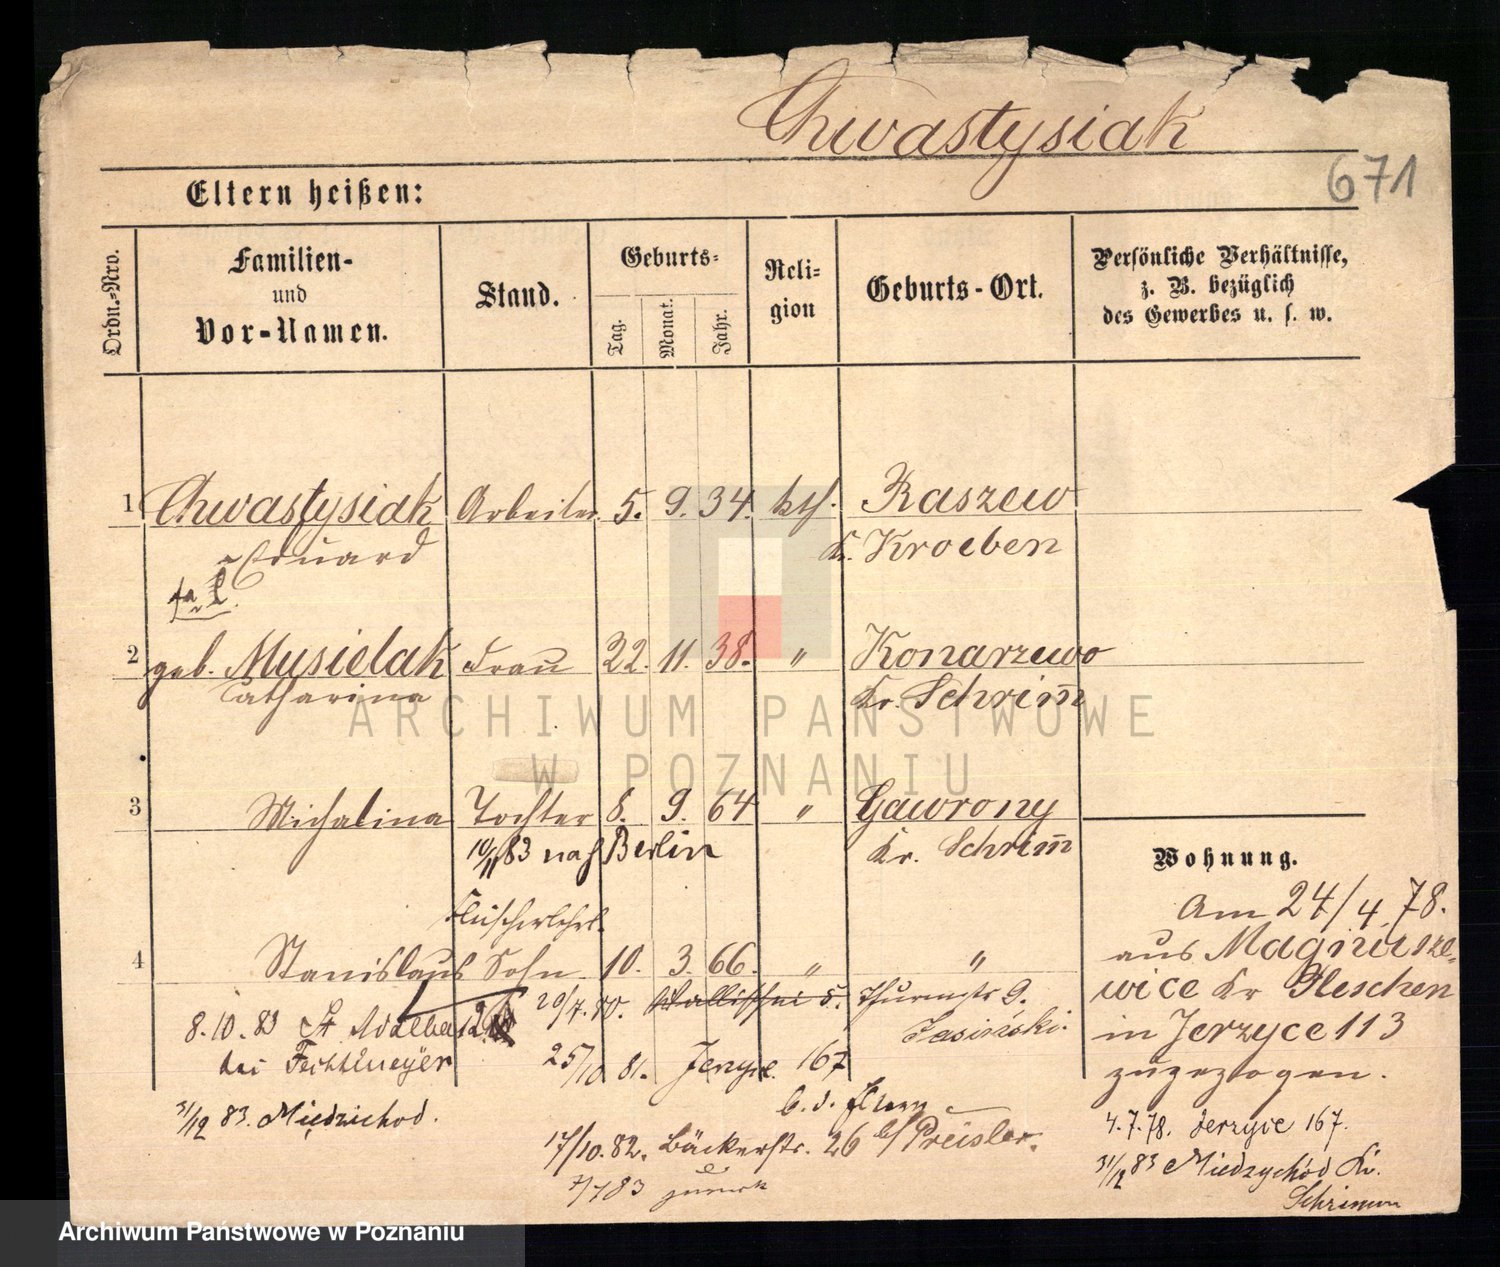 Chwastysiak
671
Eltern heißen:
Ordn.-Nro.
Familien-
und
Vor-Namen.
Stand.
Geburts-
Tag.
Monat.
Jahr.
Reli-
gion
Geburts-Ort.
Persönliche Verhältnisse,
z. B. bezüglich
des Gewerbes u. s. w.
1 Chwastysiak Arbeiter 5. 9. 34. kth. Raszew
Eduard Kr. Kroeben
2 geb. Musielak Frau 22. 11. 38. " Konarzewo
Catharina Kr. Schrim̅
3 Michalina Tochter 8. 9. 64 " Gawrony
10/11 83 nach Berlin Kr. Schrim̅
Fleischerlehrl.
4 Stanislaus Sohn 10. 3. 66. " "
20/7. 80. Wallischei 5. Thurmstr 9.
Jasiński.
8.10.83 St Adalbert
bei
25/10 81. Jerzyce 167
b. d. Eltern
31/12 83. Miedzichod.
17/10. 82. Bäckerstr. 26 b/ Preisler.
7/7 83 zurück
Wohnung.
Am 24/4 78.
aus Magnusze-
wice Kr Pleschen
in Jerzyce 113
zugezogen.
4.7.78. Jerzyce 167.
31/12 83 Miedzychód Kr.
Schrimm
ARCHIWUM PAŃSTWOWE
W POZNANIU
Archiwum Państwowe w Poznaniu